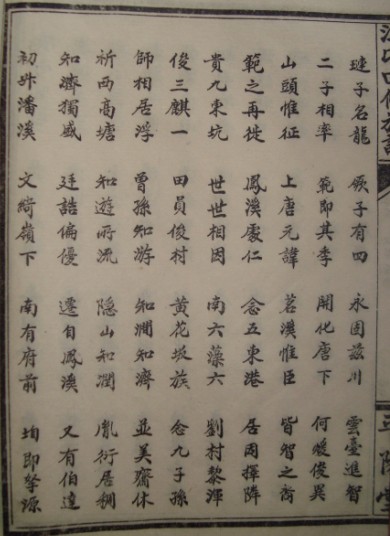 璉子名龍 厥子有四 永固巖川 雲臺進智
二子相率 範即其季 開化唐下 何暖俊異
山頭惟征 上唐元諱 茗溪惟臣 皆智之裔
範之再徙 鳳溪處仁 念五東港 居周擇隣
貴九東坑 世世相因 南六藻六 劉村黎渾
俊三麒一 田員俊村 黃花坂族 念九子孫
師相居浮 曾孫知游 知澗知濟 並美齋休
祈西高塘 知遊所流 隱山知潤 胤衍居稠
知濟獨盛 廷誥偏優 遷自鳳溪 又有伯達
初升潘溪 文綺嶺下 南有府前 均即擎源